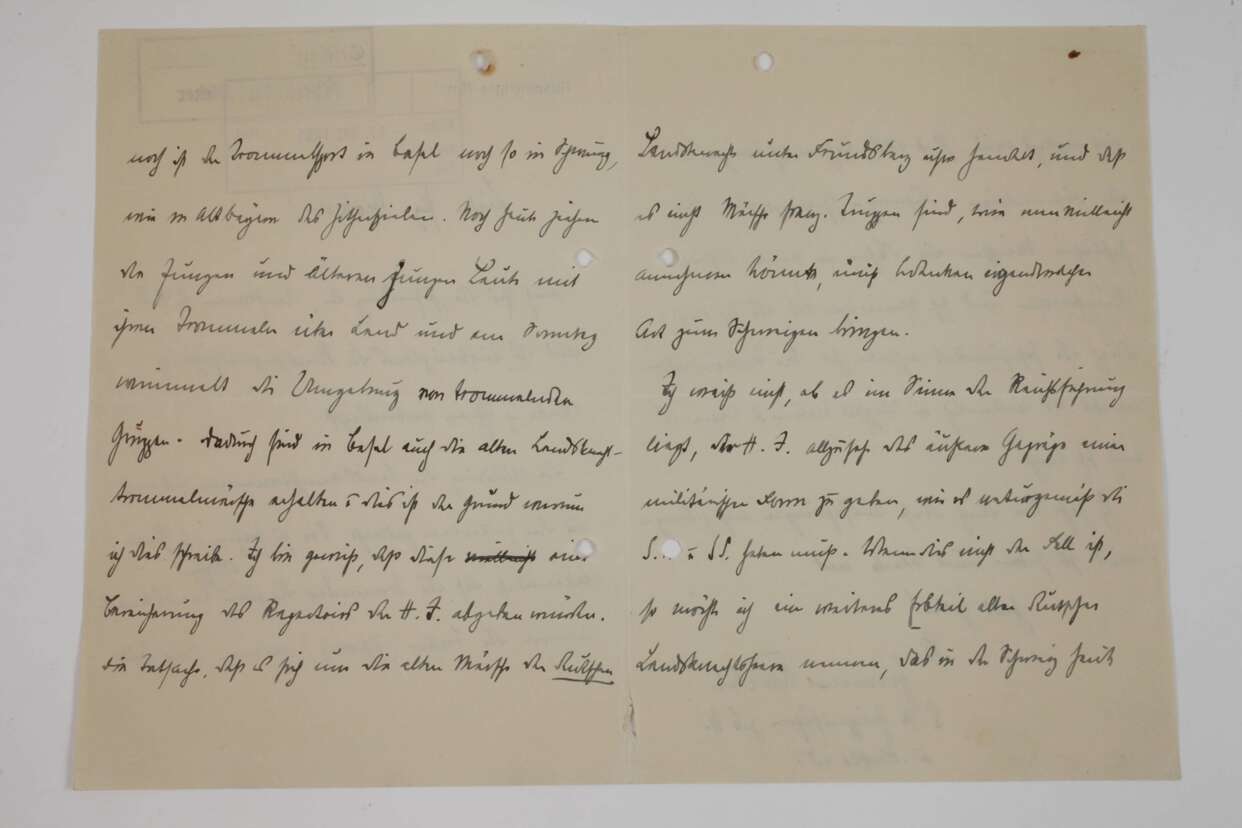 noch ist der Trommelsport in Basel noch so im Schwung,
wie in Altbayern das Zitherspielen. Noch heute ziehen
die Jungen und älteren jungen Leute mit
ihren Trommeln über Land und am Sonntag
wimmelt die Umgebung von trommelnden
Gruppen. Dadurch sind in Basel auch die alten Landsknecht-
trommelmärsche erhalten u dies ist der Grund warum
ich dies schreibe. Ich bin gewiss, daß diese vielleicht eine
Bereicherung des Repertoirs der H. J. abgeben würden.
Die Tatsache, daß es sich um die alten Märsche der deutschen
Landsknechte unter Frundsberg usw handelt, und daß
es nicht Märsche franz. Truppen sind, wie man vielleicht
annehmen könnte, muß Bedenken irgendwelcher
Art zum Schweigen bringen.
Ich weiß nicht, ob es im Sinne der Reichsführung
liegt, der H. J. allzusehr das äußere Gepräge einer
militärischen Form zu geben, wie es naturgemäß die
S. u SS. haben muß. Wenn dies nicht der Fall ist,
so möchte ich ein weiteres Erbteil alter deutscher
Landsknechtsheere nennen, das in der Schweiz heute